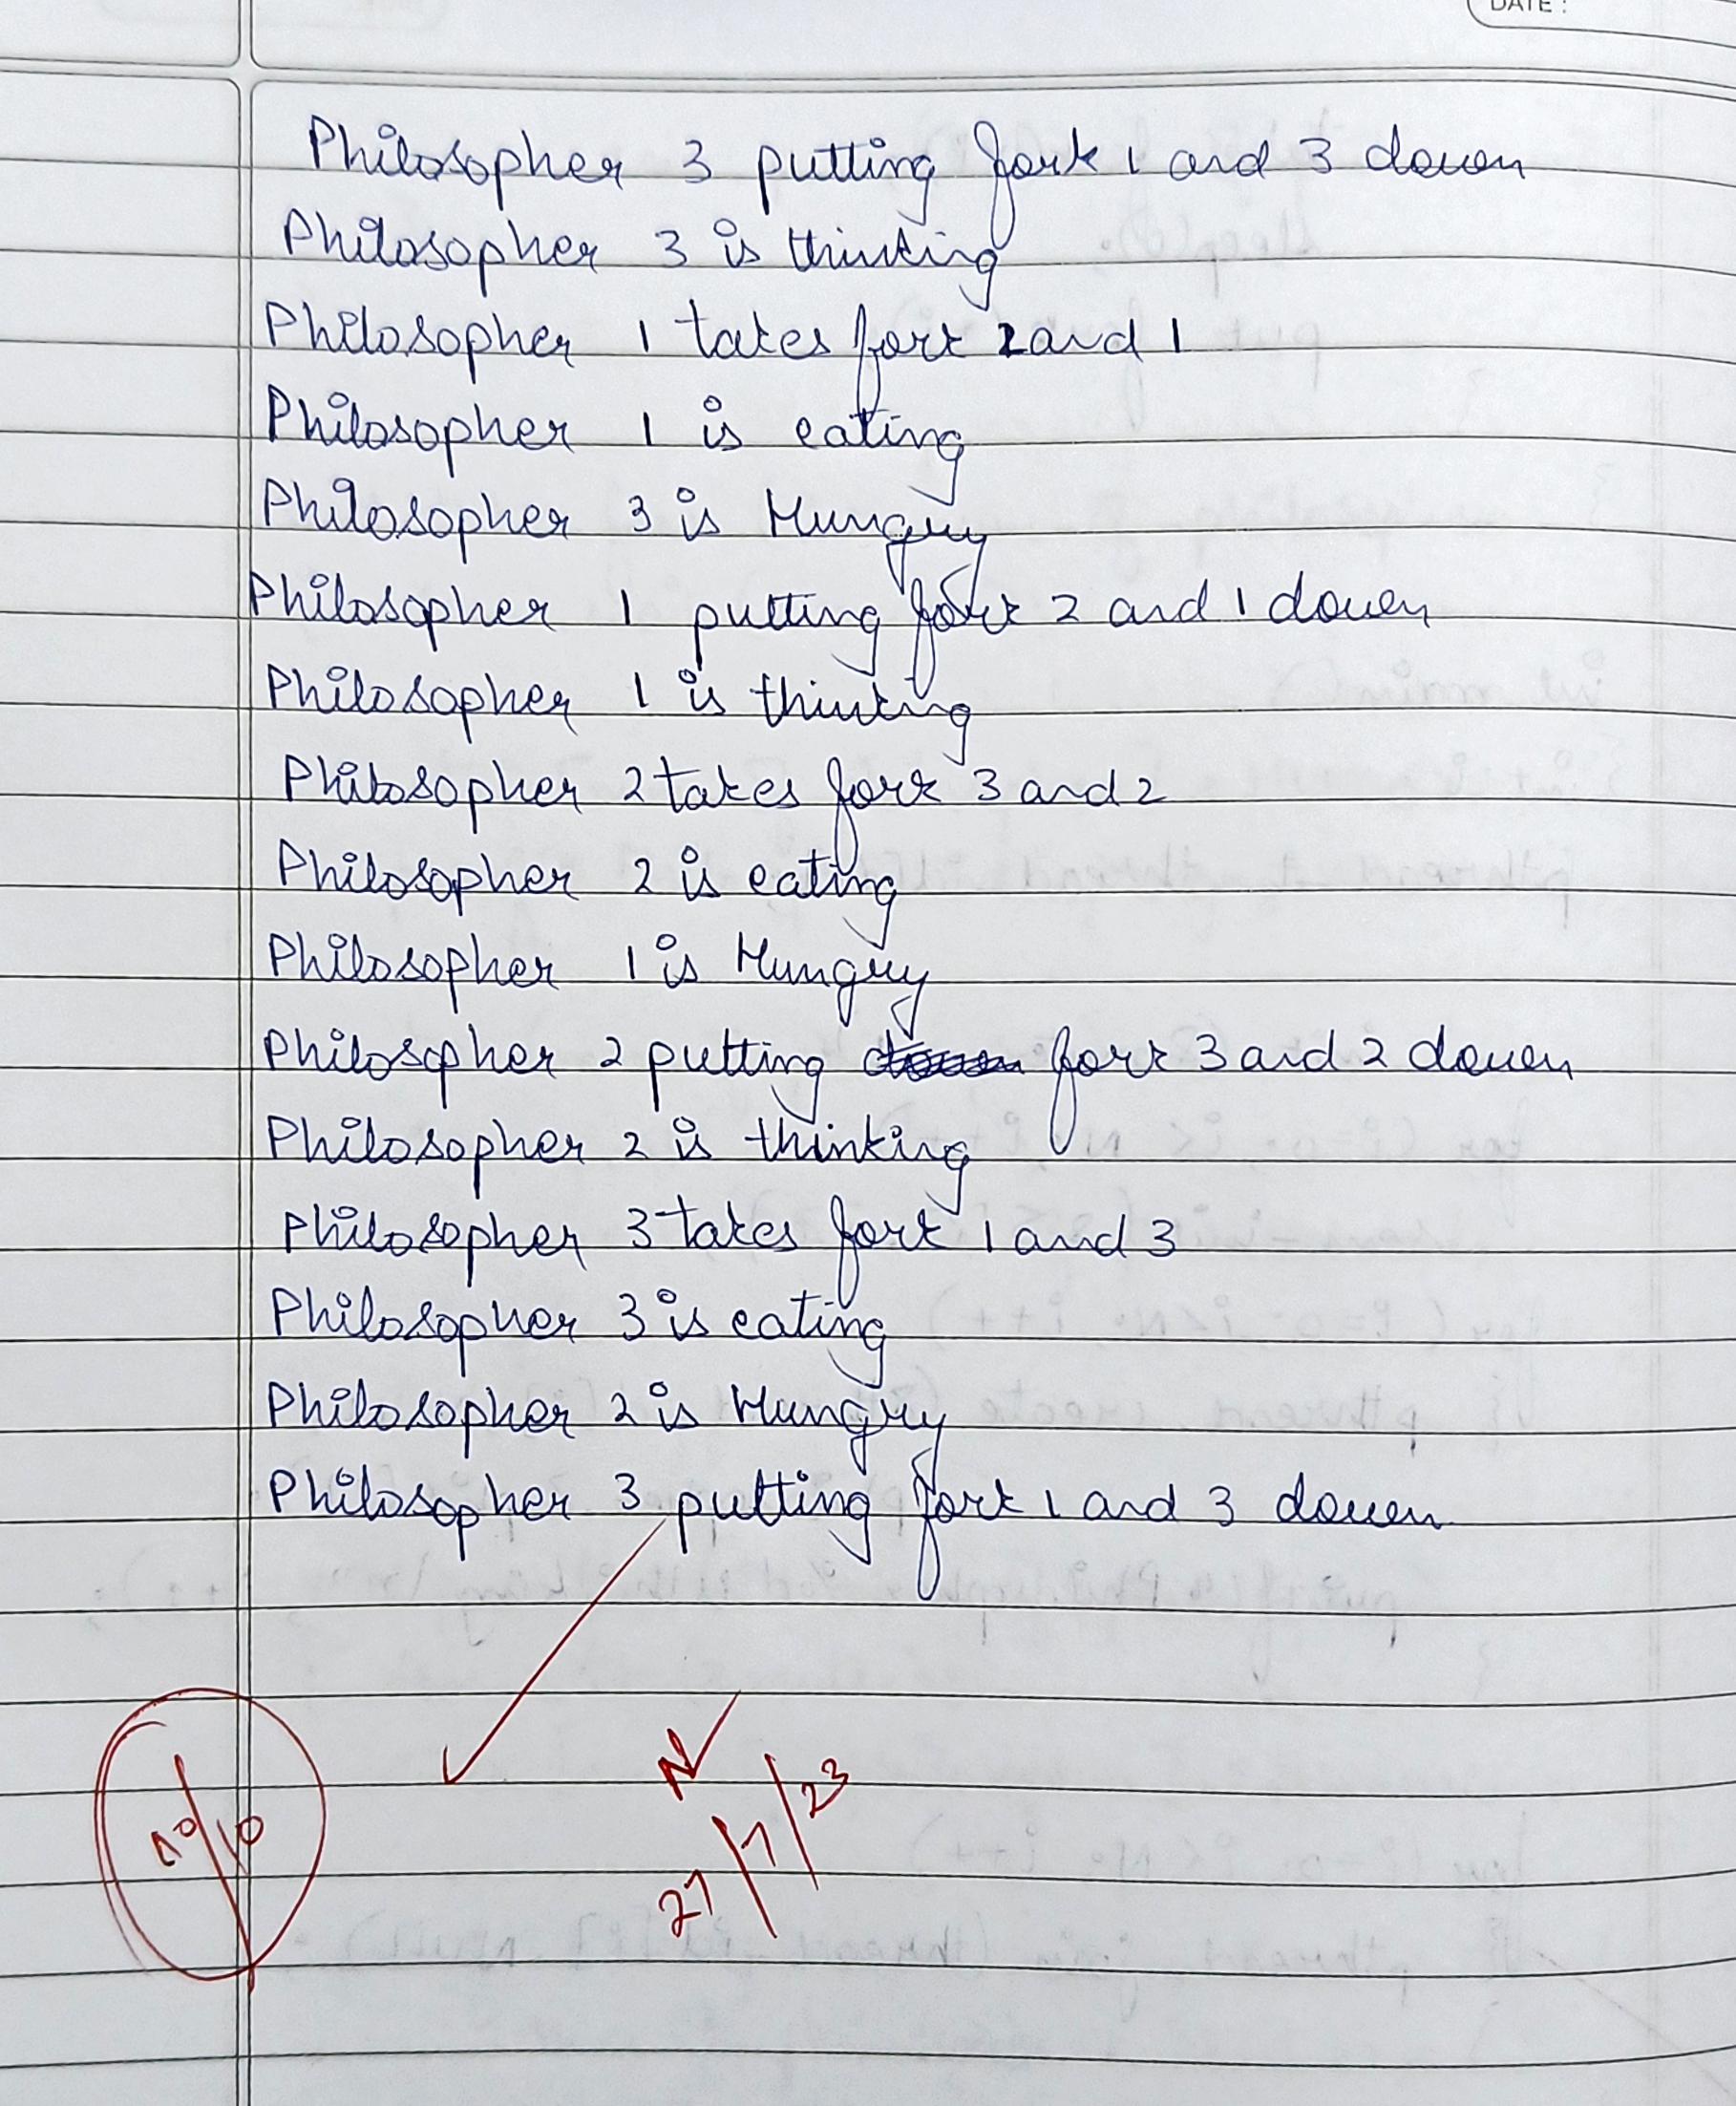 DATE :
Philosopher 3 putting fork 1 and 3 down
Philosopher 3 is thinking
Philosopher 1 takes fork 2 and 1
Philosopher 1 is eating
Philosopher 3 is Hungry
Philosopher 1 putting fork 2 and 1 down
Philosopher 1 is thinking
Philosopher 2 takes fork 3 and 2
Philosopher 2 is eating
Philosopher 1 is Hungry
Philosopher 2 putting fork 3 and 2 down
Philosopher 2 is thinking
Philosopher 3 takes fork 1 and 3
Philosopher 3 is eating
Philosopher 2 is Hungry
Philosopher 3 putting fork 1 and 3 down
10/10
27/7/23